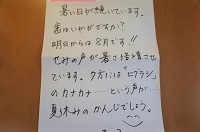 暑い日が続いています。
歯はいかがですか?
明日からは8月です!!
せみの声が暑さ倍増させ
ています。夕方には「ヒグラシ」
のカナカナ…という声が…
夏休みのかんじでしょう。